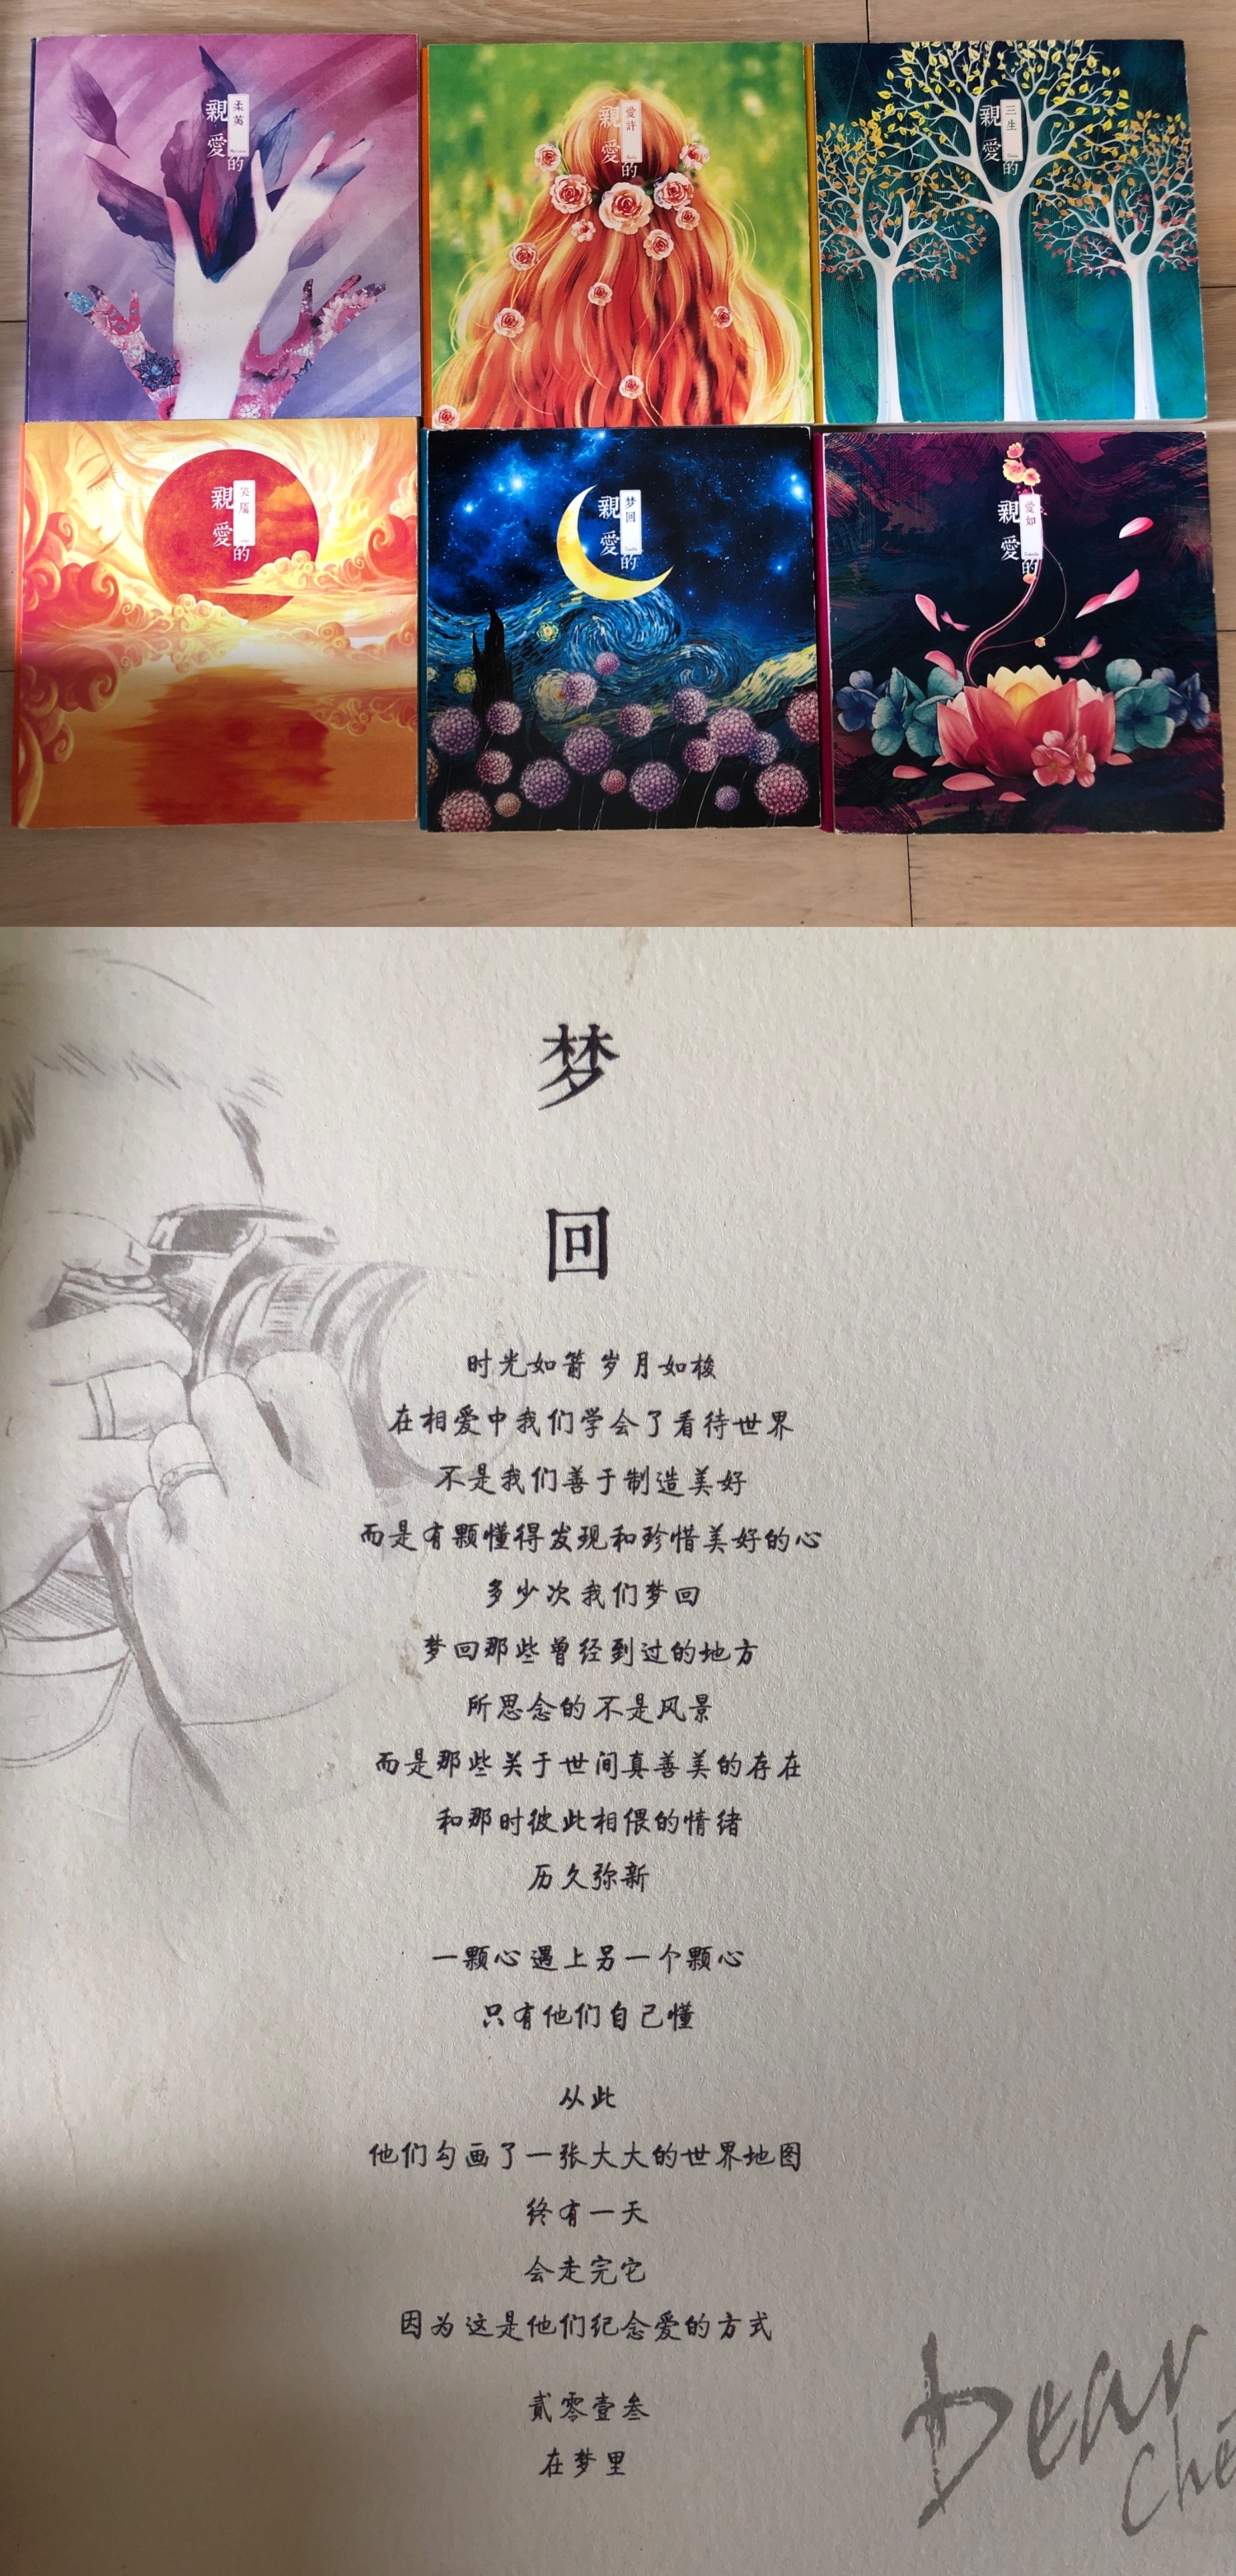 親愛的
柔荑
親愛的
愛許
親愛的
三生
親愛的
笑靨
親愛的
梦回
親愛的
愛如
梦
回
时光如箭 岁月如梭
在相爱中我们学会了看待世界
不是我们善于制造美好
而是有颗懂得发现和珍惜美好的心
多少次我们梦回
梦回那些曾经到过的地方
所思念的不是风景
而是那些关于世间真善美的存在
和那时彼此相偎的情绪
历久弥新
一颗心遇上另一个颗心
只有他们自己懂
从此
他们勾画了一张大大的世界地图
终有一天
会走完它
因为这是他们纪念爱的方式
贰零壹叁
在梦里
Dear